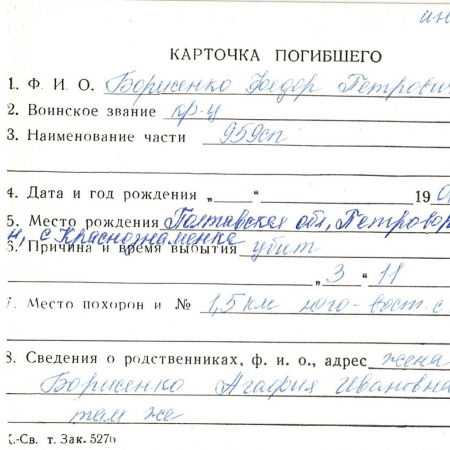 ин
КАРТОЧКА ПОГИБШЕГО
1. Ф. И. О. Борисенко Федор Петрович
2. Воинское звание кр-ц
3. Наименование части 959сп
4. Дата и год рождения „ “ 190
5. Место рождения Полтавская обл, Петровор
н, с Краснознаменка
6. Причина и время выбытия убит
„ 3 “ 11
7. Место похорон и № 1,5 км юго-вост. с
8. Сведения о родственниках, ф. и. о., адрес жена
Борисенко Агафия Ивановна
там же
К.-Св. т. Зак. 527б